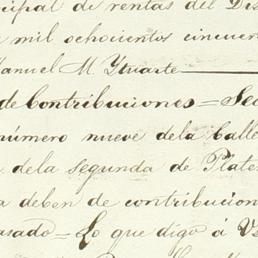 cipal de rentas del Dis
mil ochocientos cincuen
Manuel M. Yturarte
de Contribuciones = Sec
número nueve dela Calle
dela segunda de Plate
a deben de contribucion
asado = Lo que digo á V